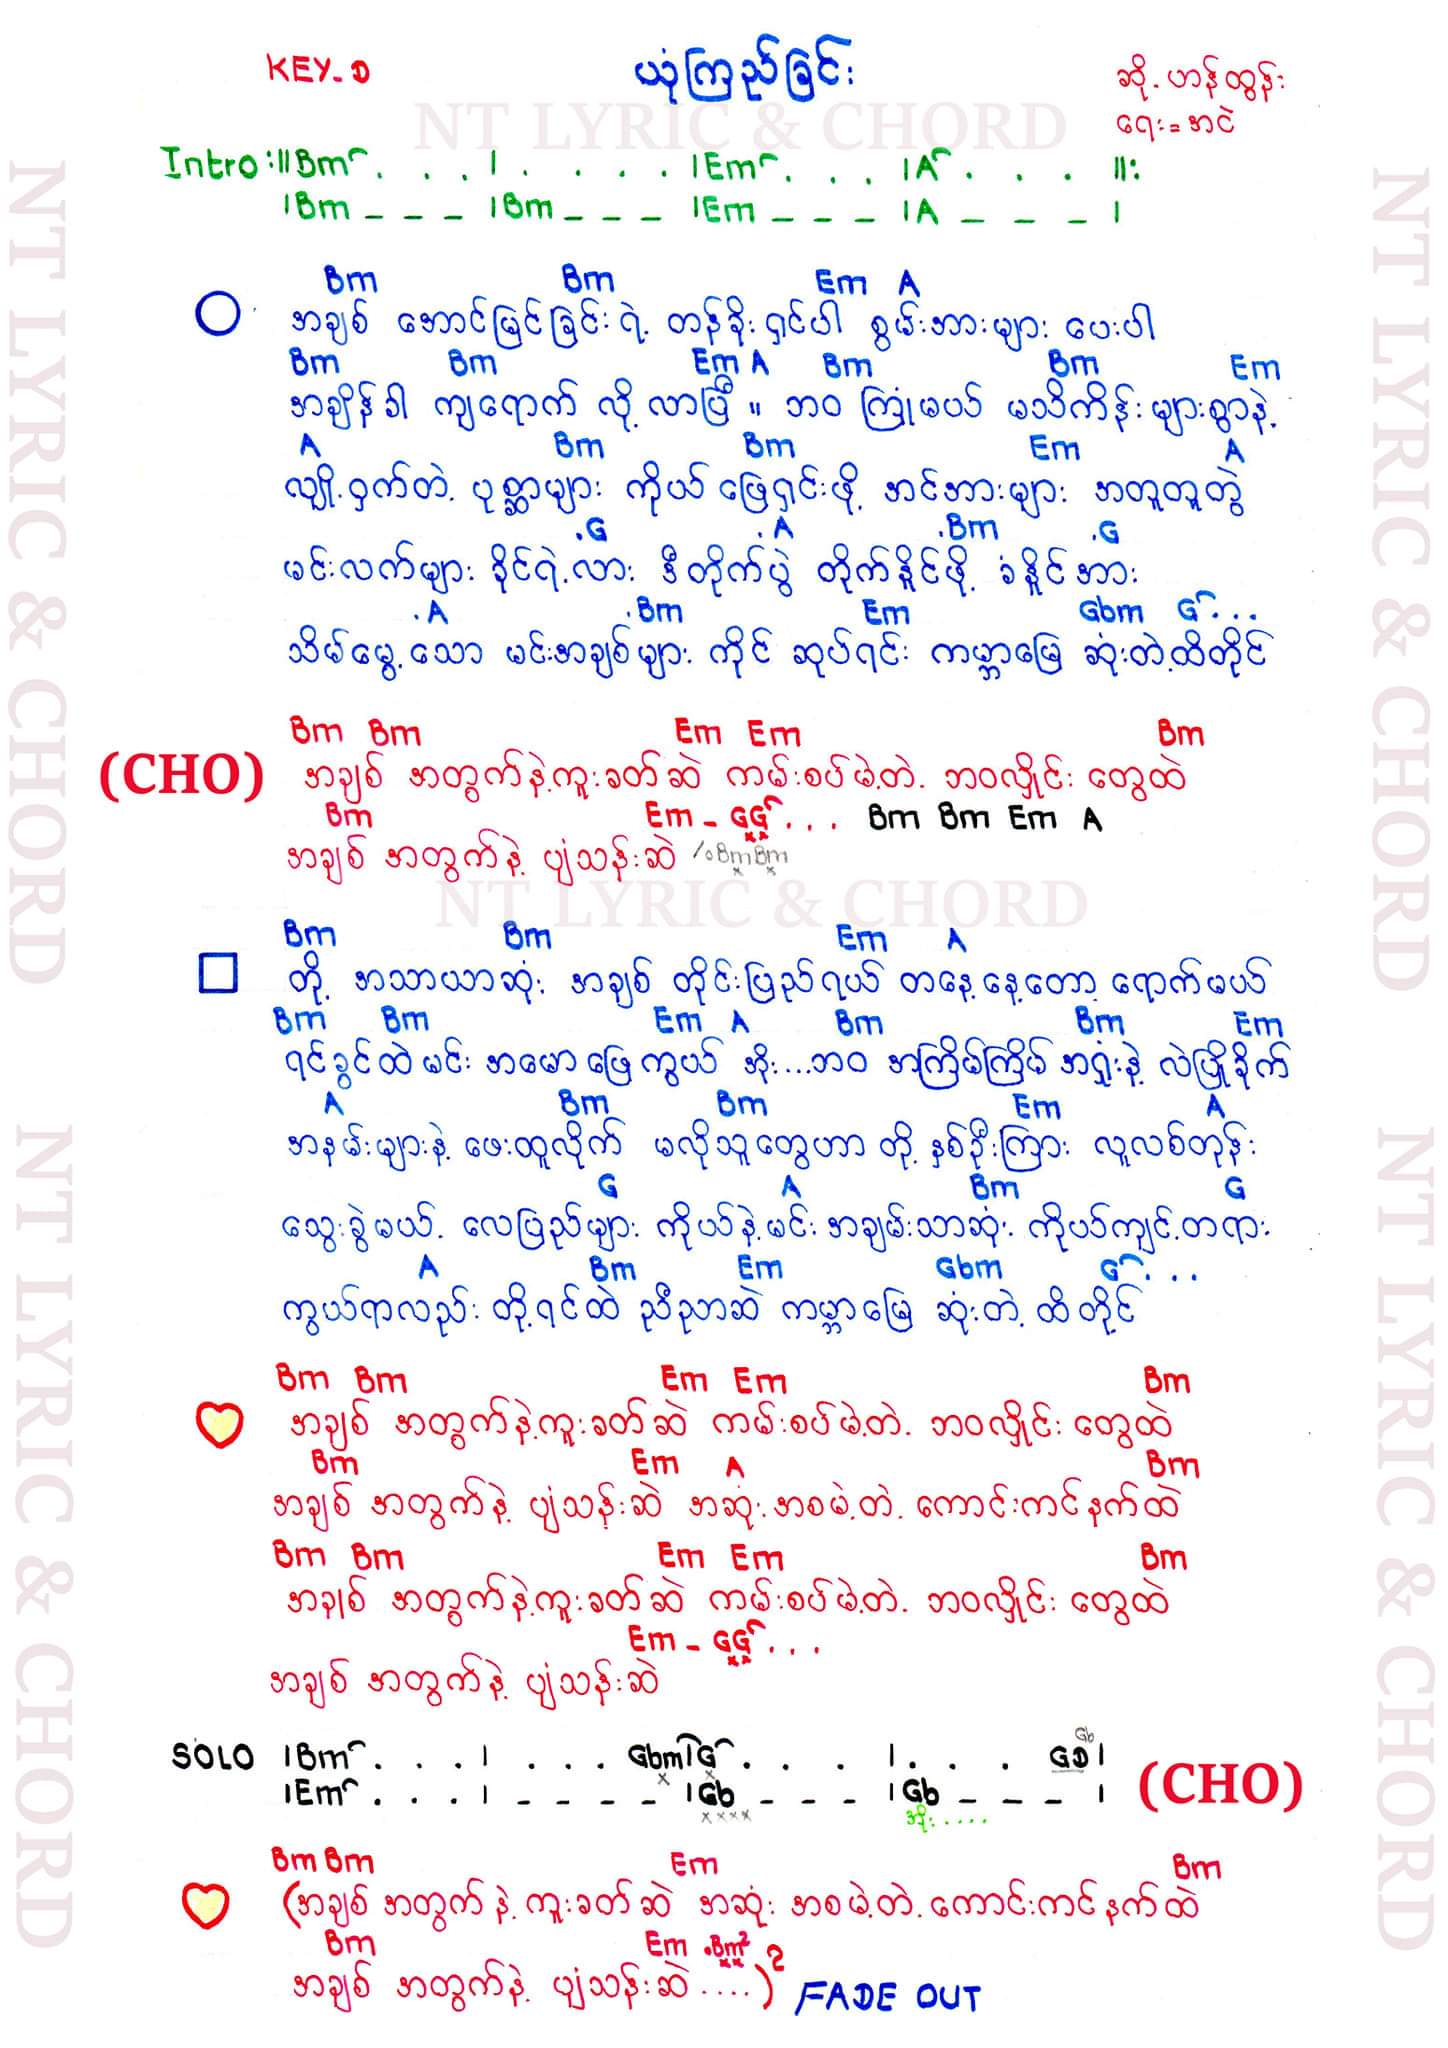 KEY-D
ယုံကြည်ခြင်း
ဆို.ဟန်ထွန်း
ရေး=အငဲ
NT LYRIC & CHORD
Intro:||Bm . . . | . . . . |Em . . . |A . . . ||:
|Bm _ _ _ |Bm _ _ _ |Em _ _ _ |A _ _ _ |
Bm Bm Em A
အချစ် အောင်မြင်ခြင်းရဲ့ တန်ခိုးရှင်ပါ စွမ်းအားများ ပေးပါ
Bm Bm Em A Bm Bm Em
အချိန်ခါ ကျရောက် လို့လာပြီ ။ ဘဝ ကြုံမယ် မသိကိန်းများစွာနဲ့
A Bm Bm Em A
လျှို့ဝှက်တဲ့ ပုစ္ဆာများ ကိုယ် ဖြေရှင်းဖို့ အင်အားများ အတူတူတွဲ
.G .A .Bm .G
မင်းလက်များ ခိုင်ရဲ့လား ဒီတိုက်ပွဲ တိုက်နိူင်ဖို့ ခံနိူင်အား
.A .Bm Em Gbm G . . .
သိမ်မွေ့သော မင်းအချစ်များ ကိုင် ဆုပ်ရင်း ကမ္ဘာမြေ ဆုံးတဲ့ထိတိုင်
Bm Bm Em Em Bm
(CHO) အချစ် အတွက်နဲ့ကူးခတ်ဆဲ ကမ်းစပ်မဲ့တဲ့ ဘဝလှိုင်း တွေထဲ
Bm Em - GG . . . Bm Bm Em A
အချစ် အတွက်နဲ့ ပျံသန်းဆဲ BmBm
NT LYRIC & CHORD
Bm Bm Em A
တို့ အသာယာဆုံး အချစ် တိုင်းပြည်ရယ် တနေ့နေ့တော့ ရောက်မယ်
Bm Bm Em A Bm Bm Em
ရင်ခွင်ထဲမင်း အမောဖြေကွယ် အိုး...ဘဝ အကြိမ်ကြိမ် အရှုံးနဲ့ လဲပြိုခိုက်
A Bm Bm Em A
အနမ်းများနဲ့ ဖေးထူလိုက် မလိုသူတွေဟာ တို့ နှစ်ဦးကြား လူလစ်တုန်း
G A Bm G
သွေးခွဲမယ့် လေပြည်များ ကိုယ်နဲ့မင်း အချမ်းသာဆုံး ကိုပဲ့ကျင့်တရား
A Bm Em Gbm G . . .
ကွယ်ရာလည်း တို့ရင်ထဲ ညီညာဆဲ ကမ္ဘာမြေ ဆုံးတဲ့ ထိတိုင်
Bm Bm Em Em Bm
အချစ် အတွက်နဲ့ကူးခတ်ဆဲ ကမ်းစပ်မဲ့တဲ့ ဘဝလှိုင်း တွေထဲ
Bm Em A Bm
အချစ် အတွက်နဲ့ ပျံသန်းဆဲ အဆုံးအစမဲ့တဲ့ ကောင်းကင်နက်ထဲ
Bm Bm Em Em Bm
အချစ် အတွက်နဲ့ကူးခတ်ဆဲ ကမ်းစပ်မဲ့တဲ့ ဘဝလှိုင်း တွေထဲ
Em - GG . . .
အချစ် အတွက်နဲ့ ပျံသန်းဆဲ
SOLO |Bm . . . | . . . Gbm|G . . . | . . . GD Gb|
|Em . . . | _ _ _ _ |Gb _ _ _ |Gb _ _ _ | (CHO)
xxxx အိုး....
Bm Bm Em Bm
(အချစ် အတွက်နဲ့ ကူးခတ်ဆဲ အဆုံး အစမဲ့တဲ့ ကောင်းကင်နက်ထဲ
Bm Em .Bm²
အချစ် အတွက်နဲ့ ပျံသန်းဆဲ ....)² FADE OUT
NT LYRIC & CHORD
NT LYRIC & CHORD
NT LYRIC & CHORD
NT LYRIC & CHORD